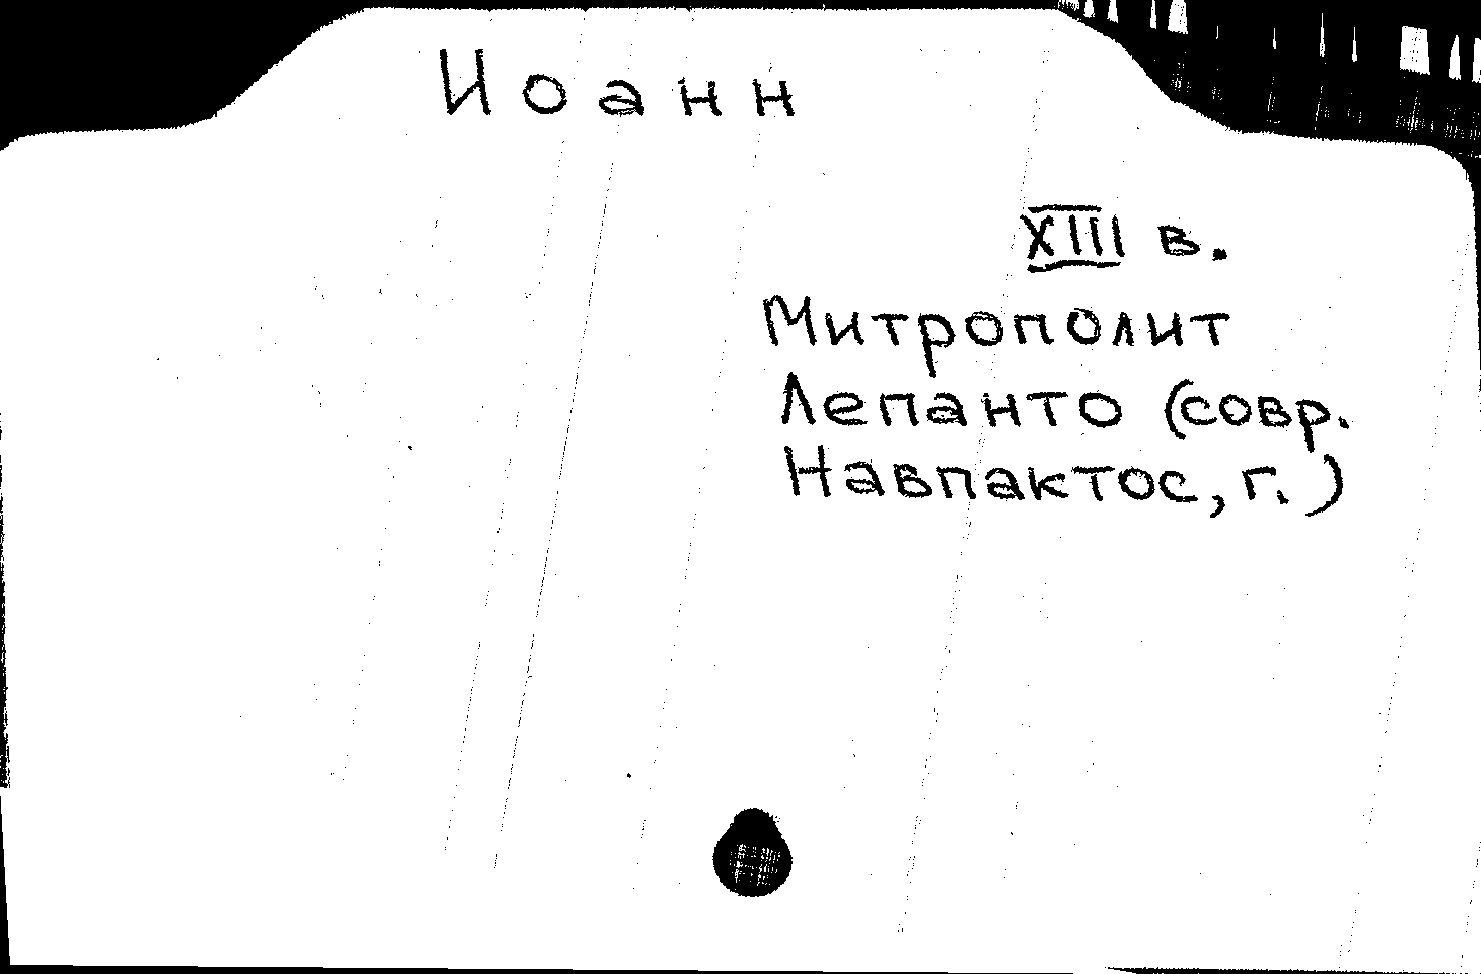 Иоанн
XIII в.
Митрополит
Лепанто (совр.
Навпактос, г.)